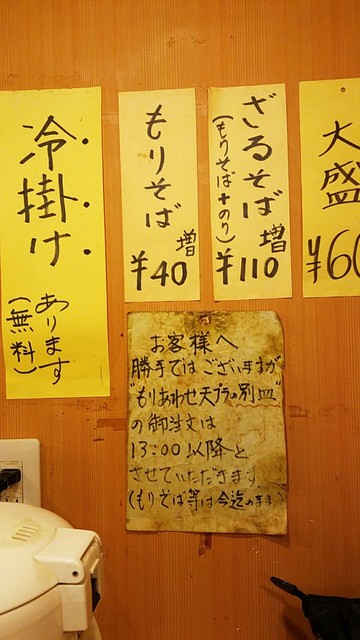 大盛
¥60
ざるそば
(もりそば+のり)
増
¥110
もりそば
増
¥40
冷掛け
あります
(無料)
お客様へ
勝手ではございますが
"もりあわせ天プラの別皿"
の御注文は
13:00以降と
させていただきます。
(もりそば等は今迄のまま)